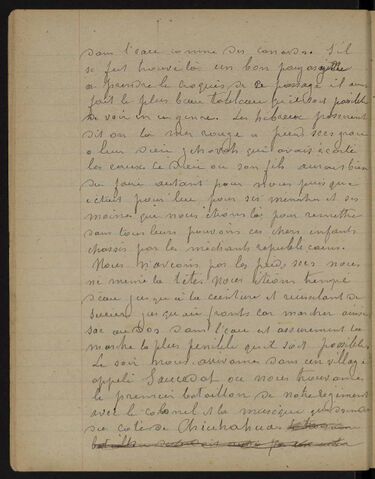 dans l'eau comme des canards. S'il
se fut trouvé la un bon paysagiste
a prendre le croquis de ce passage il aurait
fait le plus beau tableau qu'il soit possible
de voir en ce genre. Les hebreux passerent
dit on la mer rouge a pied secs grace
a leur dieu gehovah qui avait écarté
les eaux. ce Dieu ou son fils aurais bien
du faire autant pour nous puisque
c'était pour lui pour ses ministres et ses
moines que nous étions la pour remettre
sous leurs pouvoirs ces chers enfants
chassés par les méchants republicains.
Nous n'avions pas les pieds secs nous
ne meme la tête. Nous étions trempé
d'eau jusqu'a la ceinture et ruisselant de
sueur jusqu'au fronts car marcher ainsi
sac au dos dans l'eau est assurement la
marche la plus penible qu'il soit possible
Le soir nous arrivames dans un village
appelé Saucedat ou nous trouvames
le premier bataillon de notre regiment
avec le colonel et la musique
du coté de Chichahua